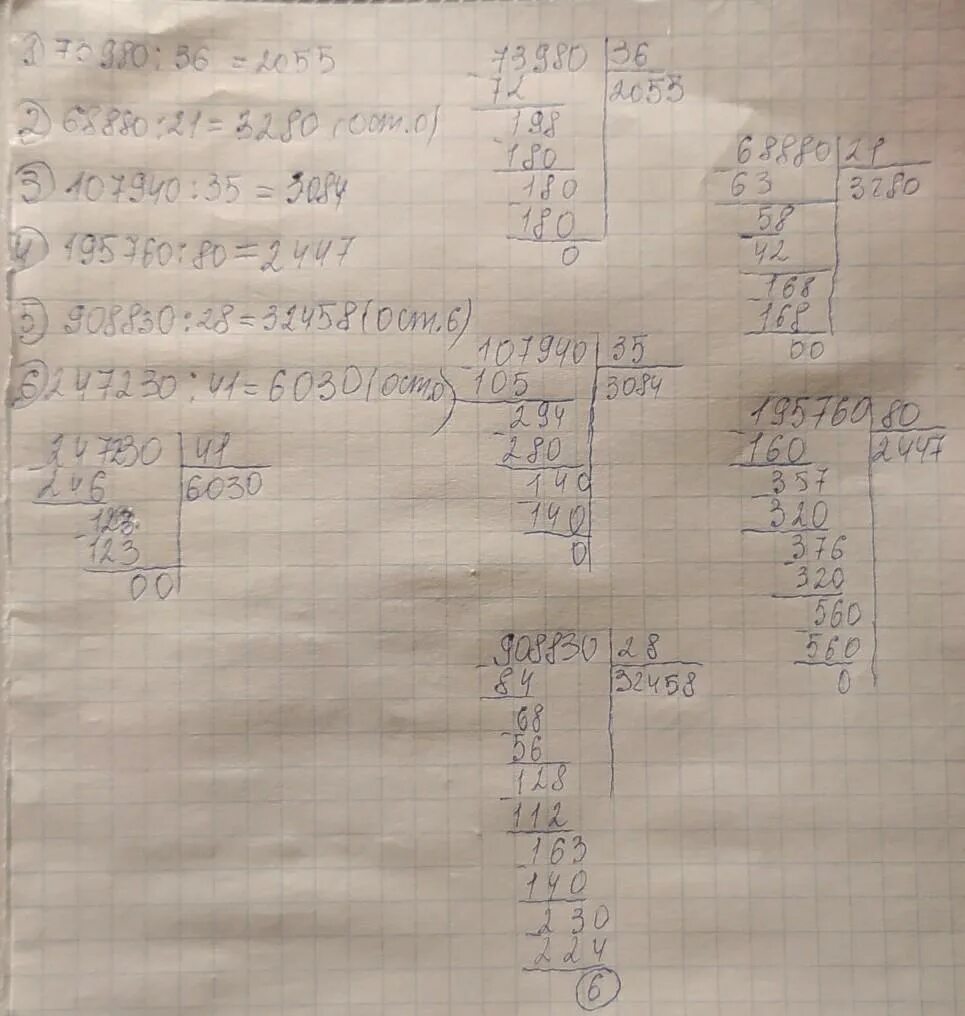 1) 73980 : 36 = 2055
2) 68880 : 21 = 3280 (ост.0)
3) 107940 : 35 = 3084
4) 195760 : 80 = 2447
5) 908830 : 28 = 32458 (ост.6)
6) 247230 : 41 = 6030 (ост0)
73980 | 36
72 | 2055
198
180
180
180
0
68880 | 21
63 | 3280
58
42
168
168
00
107940 | 35
105 | 3084
294
280
140
140
0
195760 | 80
160 | 2447
357
320
376
320
560
560
0
247230 | 41
246 | 6030
123
123
00
908830 | 28
84 | 32458
68
56
128
112
163
140
230
224
6